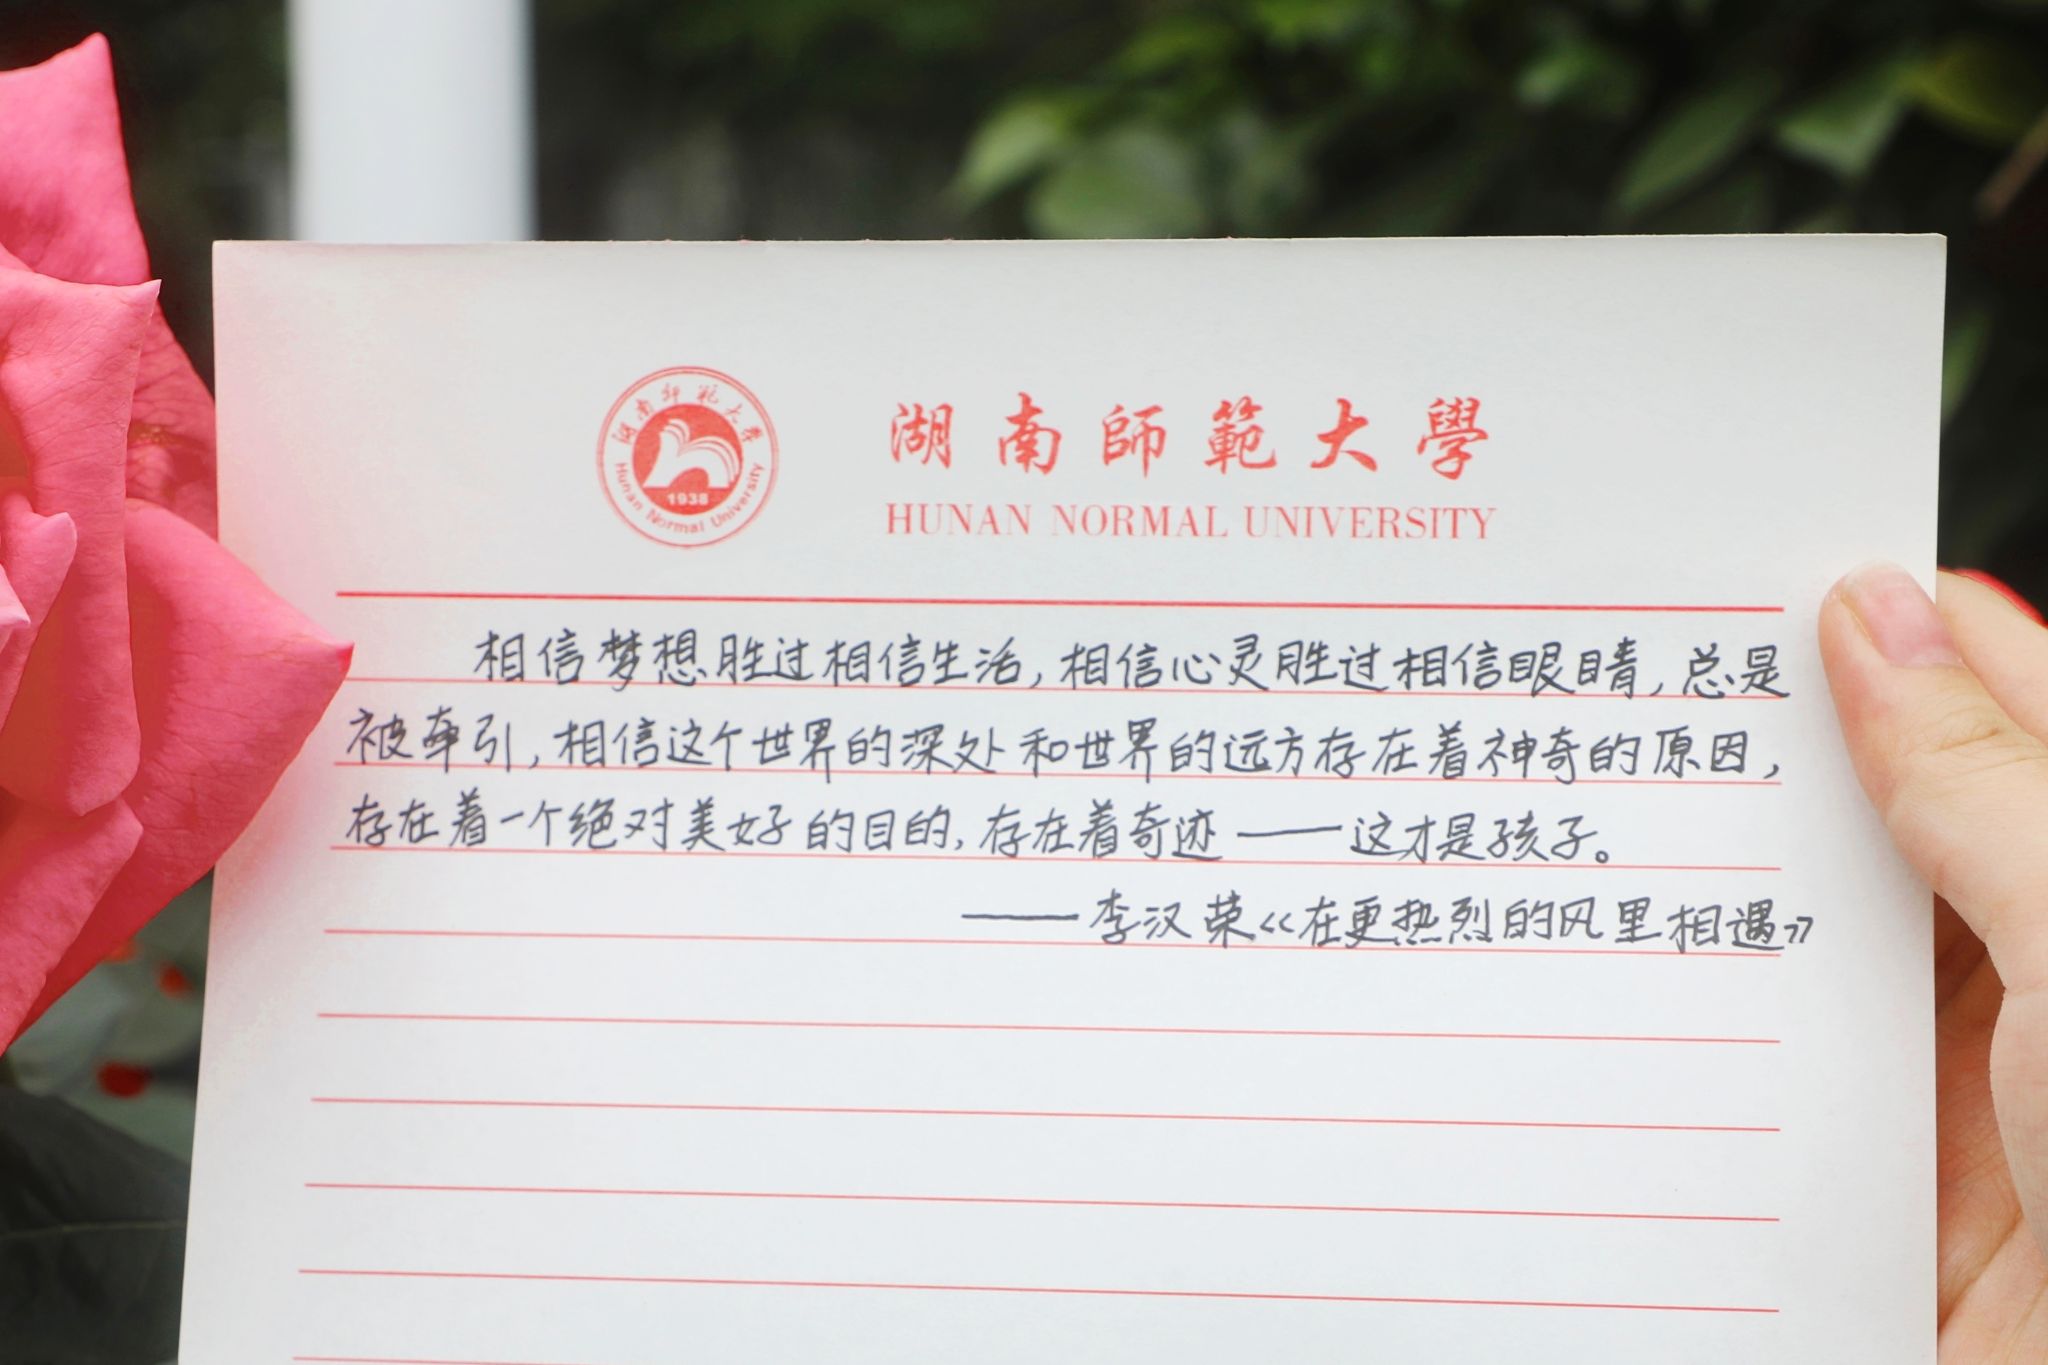 湖南師範大學
Hunan Normal University
1938
湖南師範大學
HUNAN NORMAL UNIVERSITY
相信梦想胜过相信生活,相信心灵胜过相信眼睛,总是
被牵引,相信这个世界的深处和世界的远方存在着神奇的原因,
存在着一个绝对美好的目的,存在着奇迹——这才是孩子。
——李汉荣《在更热烈的风里相遇》